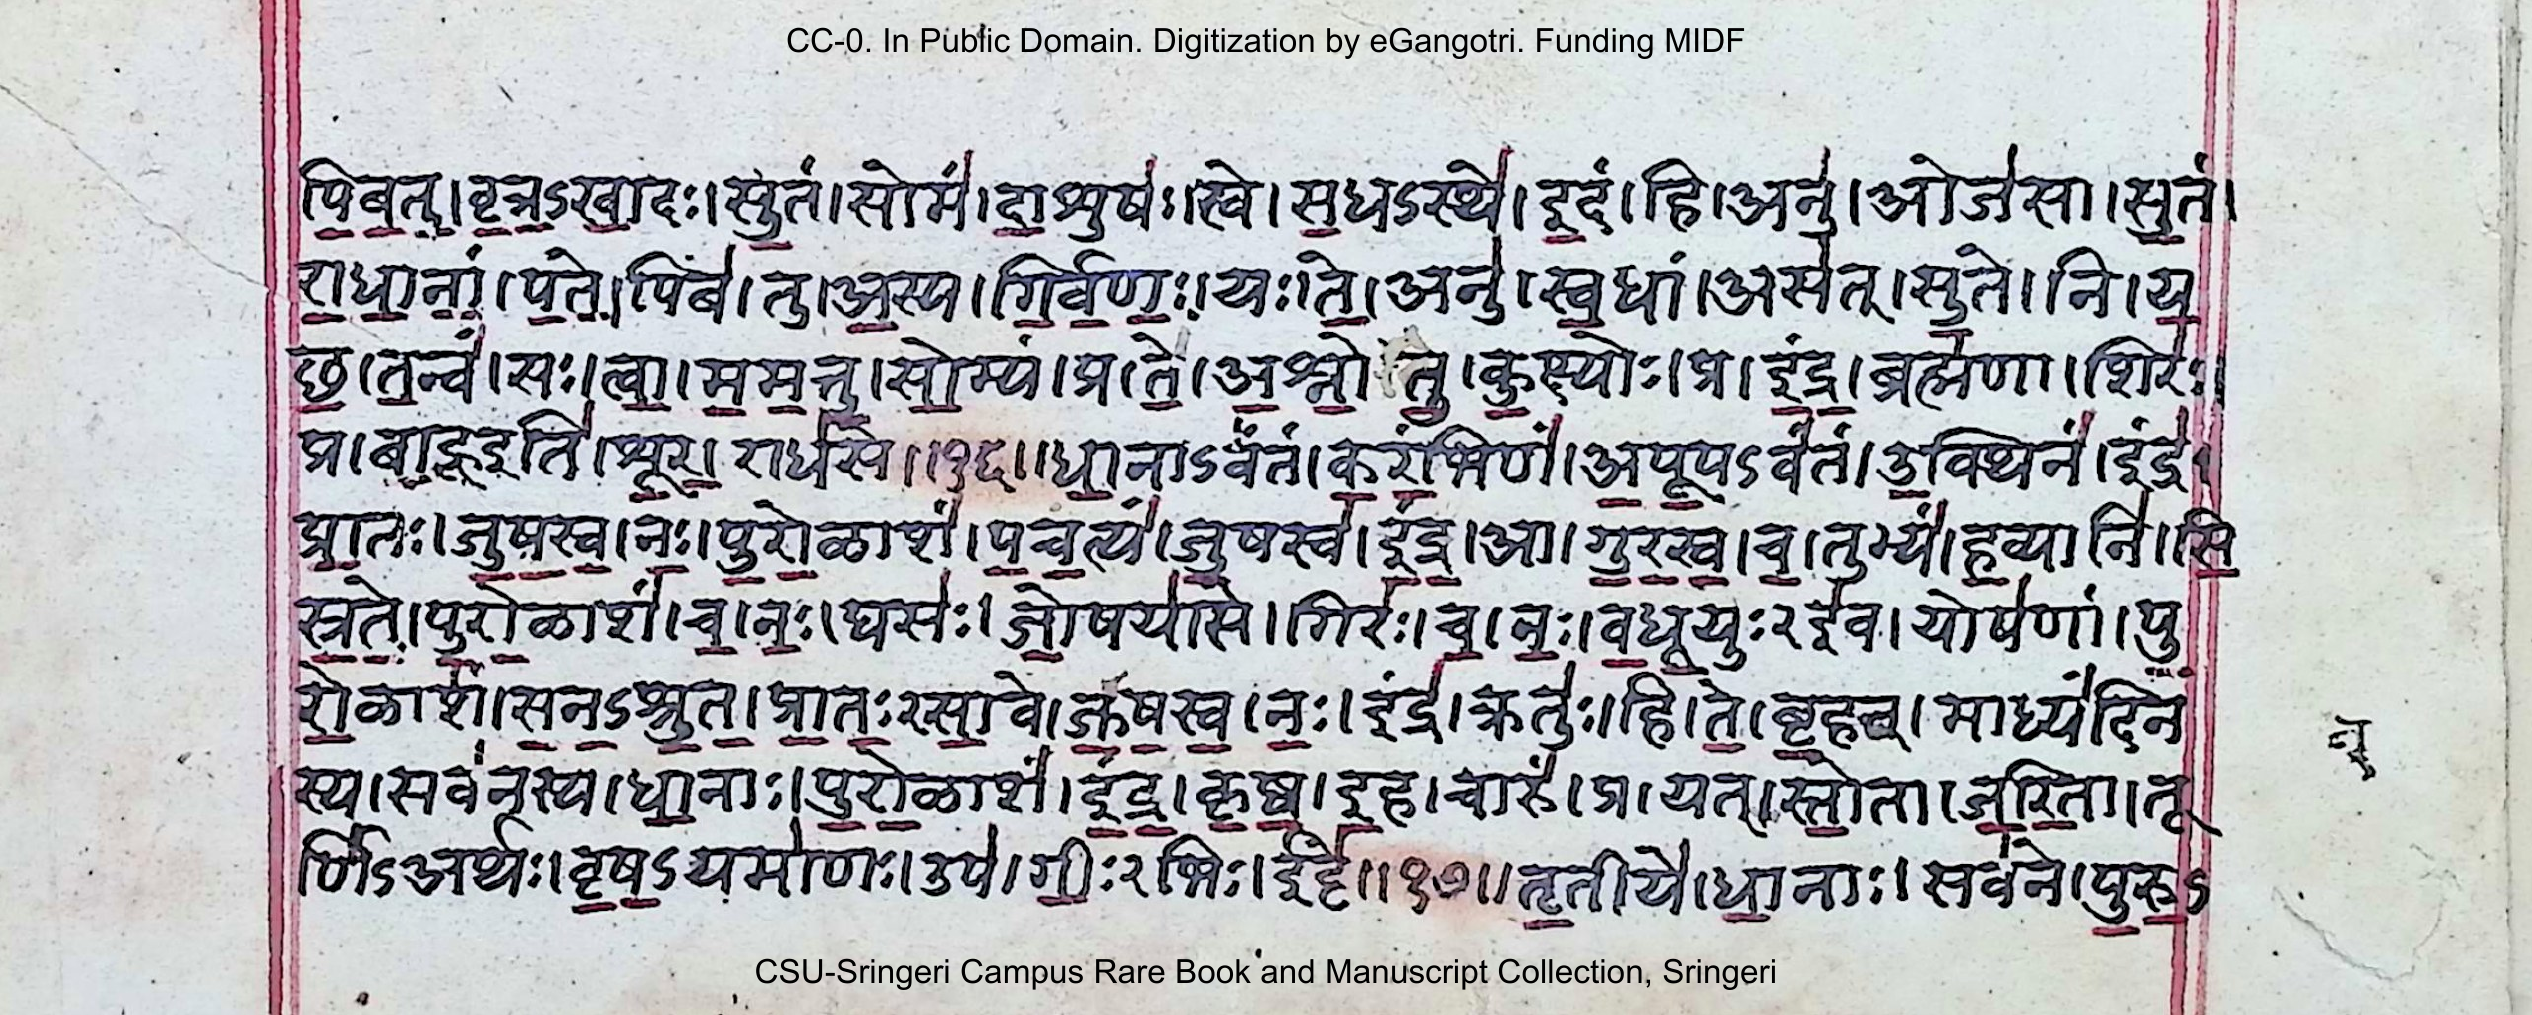 CC-0. In Public Domain. Digitization by eGangotri. Funding MIDF
पिबतु।वृत्रऽखादः।सुतं।सोमं।दाशुषः।स्वे।सधऽस्थे।इदं।हि।अनु।ओजसा।सुतं।
राधानां।पते।पिब।तु।अस्य।गिर्वणः।यः।ते।अनु।स्वधां।असत्।सुते।नि।य
छ।तन्वं।सः।त्वा।ममत्तु।सोम्यं।प्र।ते।अश्नोतु।कुक्ष्योः।प्र।इंद्र।ब्रह्मणा।शिरः।
प्र।बाहूइति।शूर।राधसे॥१६॥धानाऽवंतं।करंभिणं।अपूपऽवंतं।उक्थिनं।इंद्र।
प्रातः।जुषस्व।नः।पुरोळाशं।पचत्यं।जुषस्व।इंद्र।आ।गुरस्व।च।तुभ्यं।हव्यानि।सि
स्रते।पुरोळाशं।च।नः।घसः।जोषयासे।गिरः।च।नः।वधूयुः२इव।योषणां।पु
रोळाशं।सनऽश्रुत।प्रातः२सावे।जुषस्व।नः।इंद्र।क्रतुः।हि।ते।बृहन्।माध्यंदिन
स्य।सवनस्य।धानाः।पुरोळाशं।इंद्र।कृष्व।इह।चारुं।प्र।यत्।स्तोता।जरिता।तू
र्णिऽअर्थः।वृषऽयमाणः।उप।गीः२भिः।ईट्टे॥१७॥तृतीये।धानाः।सवने।पुरुऽ
न्
CSU-Sringeri Campus Rare Book and Manuscript Collection, Sringeri